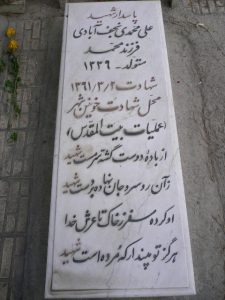 پاسدار شهید
علی محمدی نجف آبادی
فرزند محمد
متولد - ۱۳۳۹
شهادت ۱۳۶۱/۳/۲
محل شهادت خونین شهر
(عملیات بیت المقدس)
از باده دوست گشته سرمست شهید
زآن رو سر و جان نهاده بر دست شهید
او کرده سفر ز خاک تا عرش خدا
هرگز تو مپندار که مرده است شهید